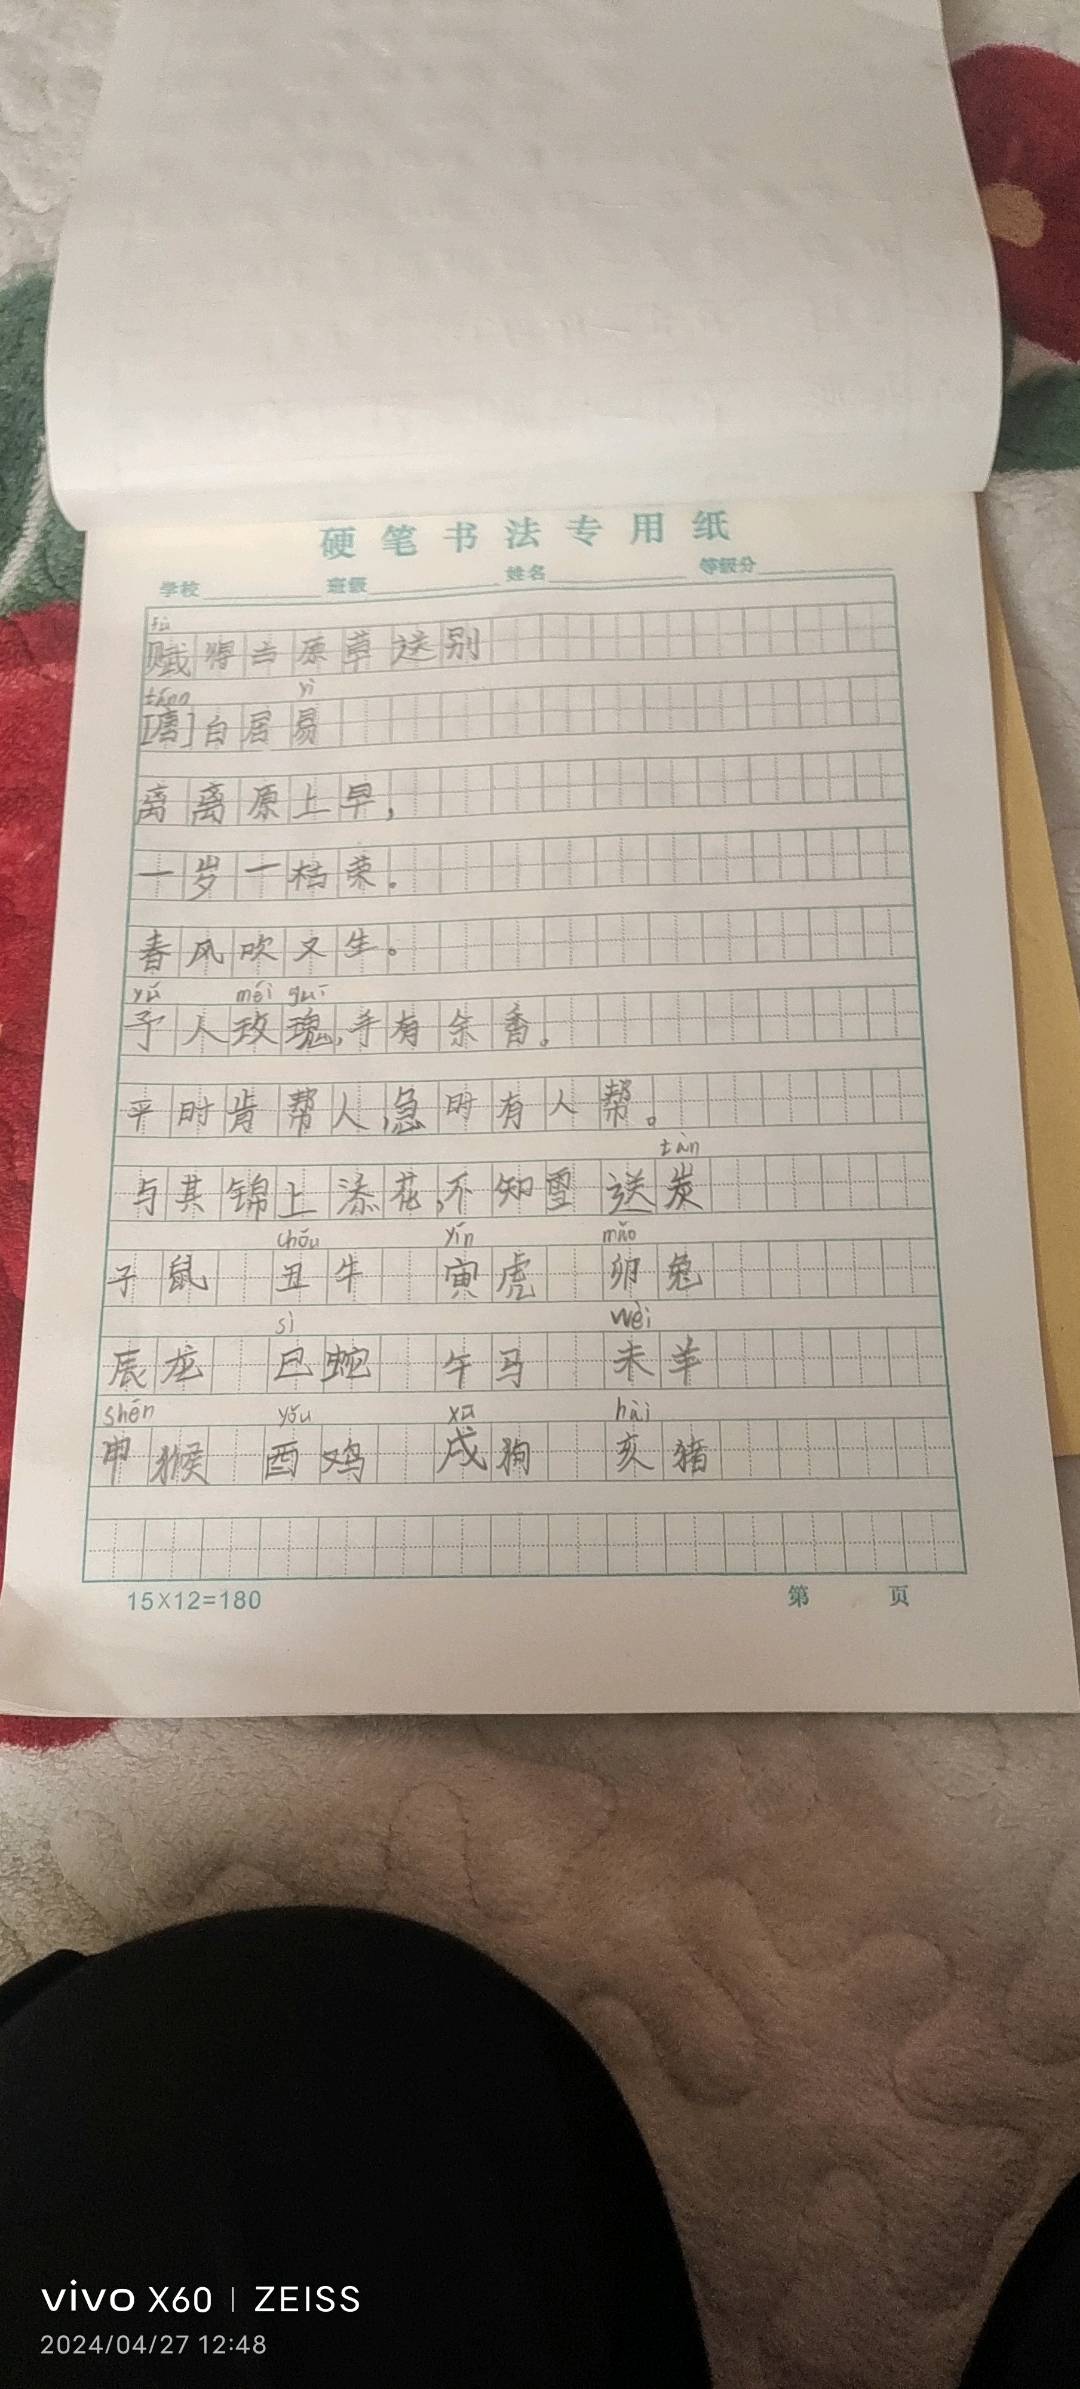 硬笔书法专用纸
学校 班级 姓名 等级分
fù
赋得古原草送别
táng yì
[唐]白居易
离离原上早,
一岁一枯荣。
春风吹又生。
yǔ méi guī
予人玫瑰,手有余香。
平时肯帮人,急时有人帮。
tàn
与其锦上添花,不知雪送炭
chǒu yín mǎo
子鼠 丑牛 寅虎 卯兔
sì wèi
辰龙 巳蛇 午马 未羊
shēn yǒu xū hài
申猴 酉鸡 戌狗 亥猪
15×12=180 第 页
vivo X60 | ZEISS
2024/04/27 12:48